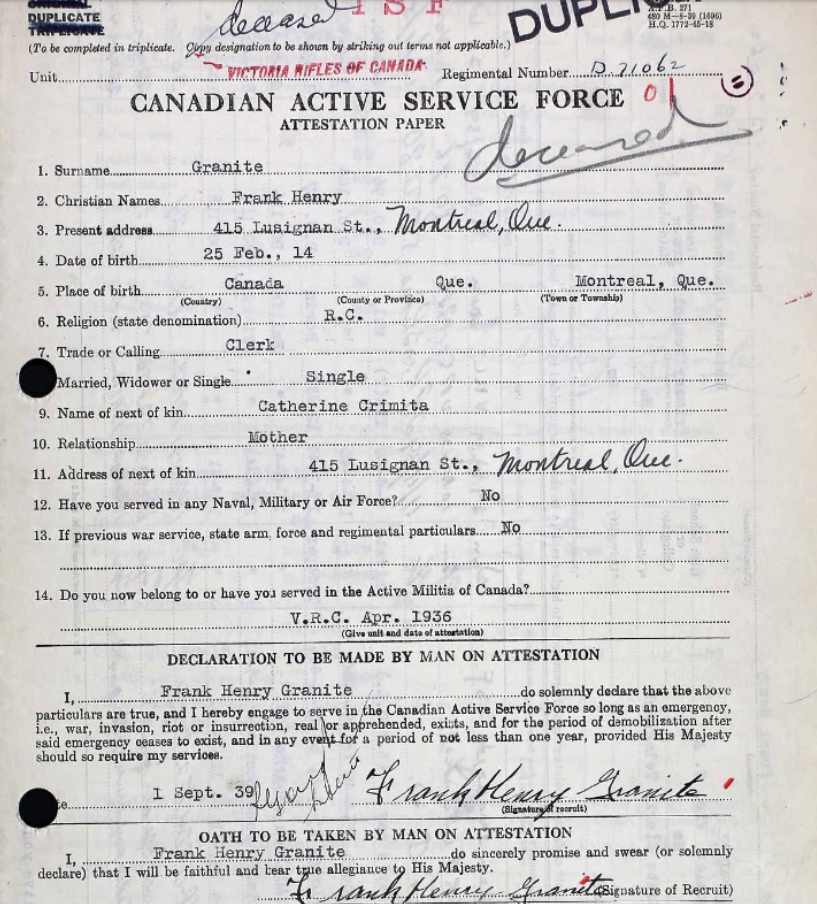 ORIGINAL
DUPLICATE
TRIPLICATE
deceased
I S F
DUPLI
271
480 M—8-39 (1696)
H.Q. 1772-45-18
(To be completed in triplicate. Copy designation to be shown by striking out terms not applicable.)
Unit VICTORIA RIFLES OF CANADA Regimental Number D.71062
CANADIAN ACTIVE SERVICE FORCE
ATTESTATION PAPER
deceased
1. Surname Granite
2. Christian Names Frank Henry
3. Present address 415 Lusignan St., Montreal, Que.
4. Date of birth 25 Feb., 14
5. Place of birth Canada Que. Montreal, Que.
(Country) (County or Province) (Town or Township)
6. Religion (state denomination) R.C.
7. Trade or Calling Clerk
Married, Widower or Single Single
9. Name of next of kin Catherine Crimita
10. Relationship Mother
11. Address of next of kin 415 Lusignan St., Montreal, Que.
12. Have you served in any Naval, Military or Air Force? No
13. If previous war service, state arm, force and regimental particulars No
14. Do you now belong to or have you served in the Active Militia of Canada?
V.R.C. Apr. 1936
(Give unit and date of attestation)
DECLARATION TO BE MADE BY MAN ON ATTESTATION
I, Frank Henry Granite do solemnly declare that the above
particulars are true, and I hereby engage to serve in the Canadian Active Service Force so long as an emergency,
i.e., war, invasion, riot or insurrection, real or apprehended, exists, and for the period of demobilization after
said emergency ceases to exist, and in any event for a period of not less than one year, provided His Majesty
should so require my services.
1 Sept. 39 Frank Henry Granite
(Signature of recruit)
OATH TO BE TAKEN BY MAN ON ATTESTATION
I, Frank Henry Granite do sincerely promise and swear (or solemnly
declare) that I will be faithful and bear true allegiance to His Majesty.
Frank Henry Granite (Signature of Recruit)